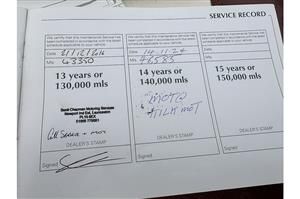 SERVICE RECORD
We certify that this maintenance Service has been completed in accordance with the maintenance schedule applicable to your vehicle.
Date
Mls 43350
13 years or
130,000 mls
Scott Chapman Motoring Services
Newport Ind Est, Launceston
PL15 8EX
+ MOT
DEALER'S STAMP
Signed
We certify that this maintenance Service has been completed in accordance with the maintenance schedule applicable to your vehicle.
Date 14.11.24
Mls 46585
14 years or
140,000 mls
MOT
DEALER'S STAMP
Signed
We certify that this maintenance Service has been completed in accordance with the maintenance schedule applicable to your vehicle.
Date
Mls
15 years or
150,000 mls
DEALER'S STAMP
Signed